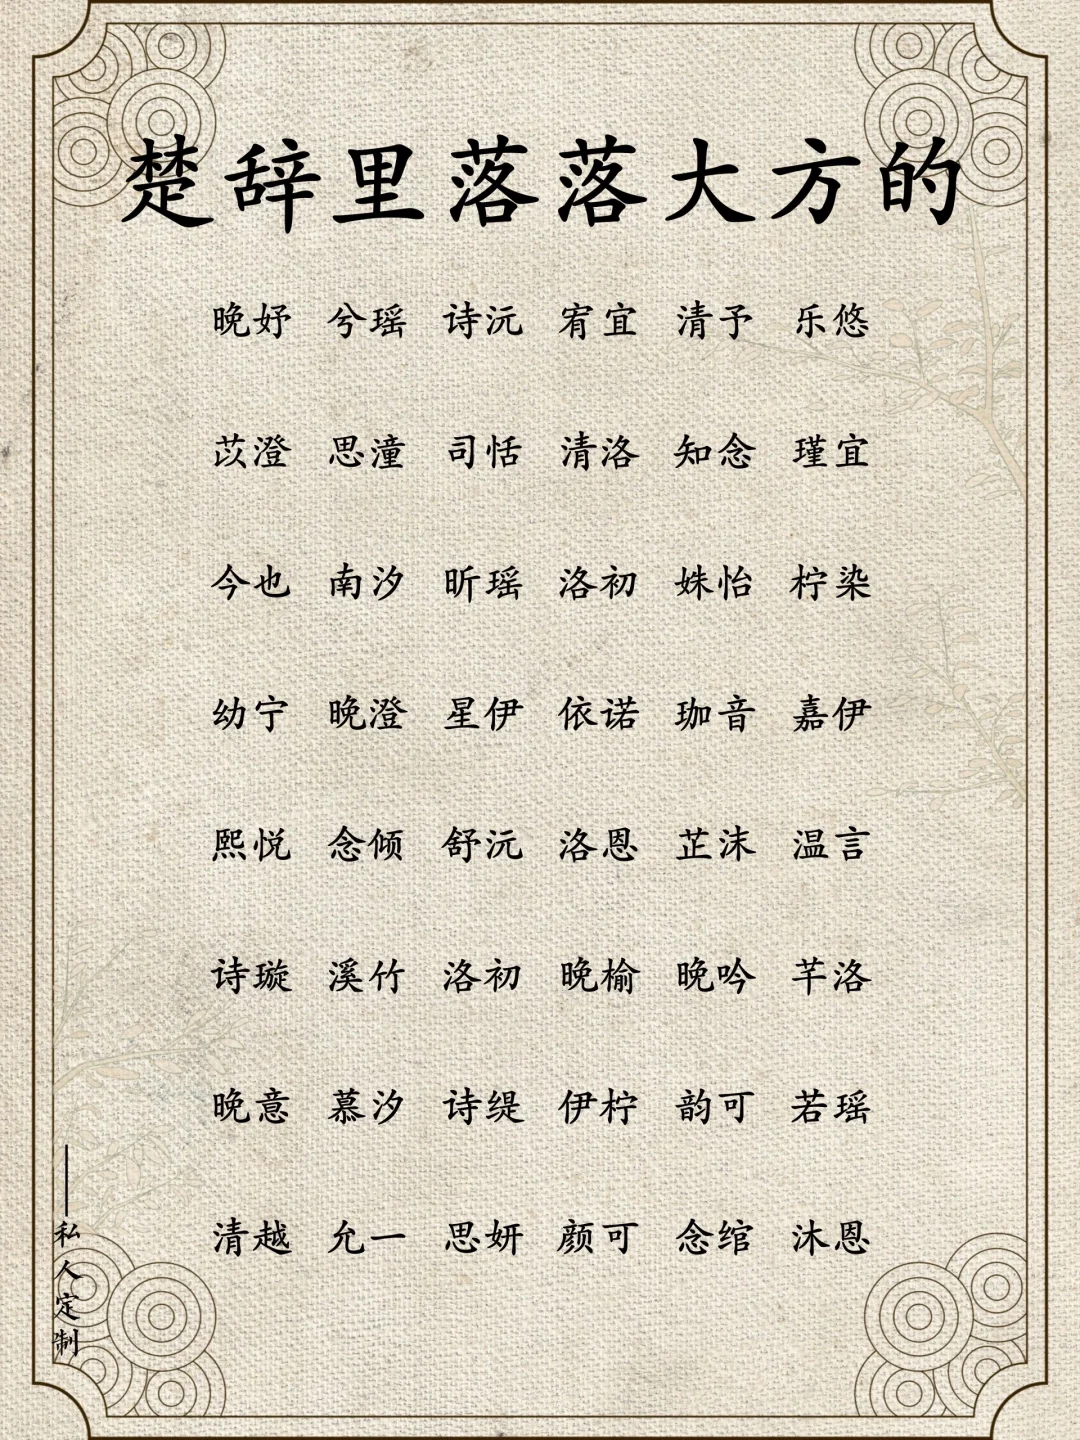 楚辞里落落大方的
晚妤 兮瑶 诗沅 宥宜 清予 乐悠
苡澄 思潼 司恬 清洛 知念 瑾宜
今也 南汐 昕瑶 洛初 姝怡 柠染
幼宁 晚澄 星伊 依诺 珈音 嘉伊
熙悦 念倾 舒沅 洛恩 芷沫 温言
诗璇 溪竹 洛初 晚榆 晚吟 芊洛
晚意 慕汐 诗缇 伊柠 韵可 若瑶
清越 允一 思妍 颜可 念绾 沐恩
——私人定制